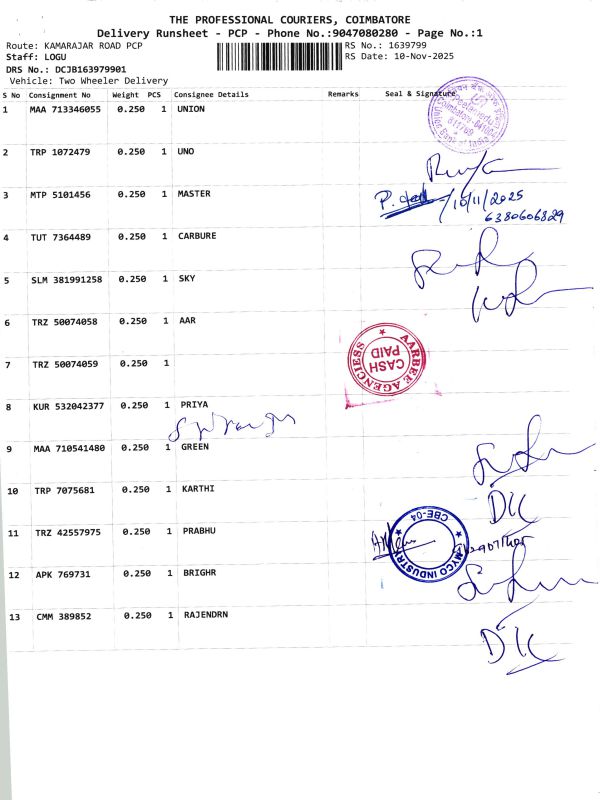 THE PROFESSIONAL COURIERS, COIMBATORE
Delivery Runsheet - PCP - Phone No.:9047080280 - Page No.:1
Route: KAMARAJAR ROAD PCP RS No.: 1639799
Staff: LOGU RS Date: 10-Nov-2025
DRS No.: DCJB163979901
Vehicle: Two Wheeler Delivery
S No Consignment No Weight PCS Consignee Details Remarks Seal & Signature
1 MAA 713346055 0.250 1 UNION
2 TRP 1072479 0.250 1 UNO
3 MTP 5101456 0.250 1 MASTER
10/11/2025
6380606829
4 TUT 7364489 0.250 1 CARBURE
5 SLM 381991258 0.250 1 SKY
6 TRZ 50074058 0.250 1 AAR
AARBEE AGENCIESS
CASH
PAID
7 TRZ 50074059 0.250 1
8 KUR 532042377 0.250 1 PRIYA
9 MAA 710541480 0.250 1 GREEN
10 TRP 7075681 0.250 1 KARTHI
11 TRZ 42557975 0.250 1 PRABHU
MYCO INDUSTRI
CBE-04
12 APK 769731 0.250 1 BRIGHR
13 CMM 389852 0.250 1 RAJENDRN